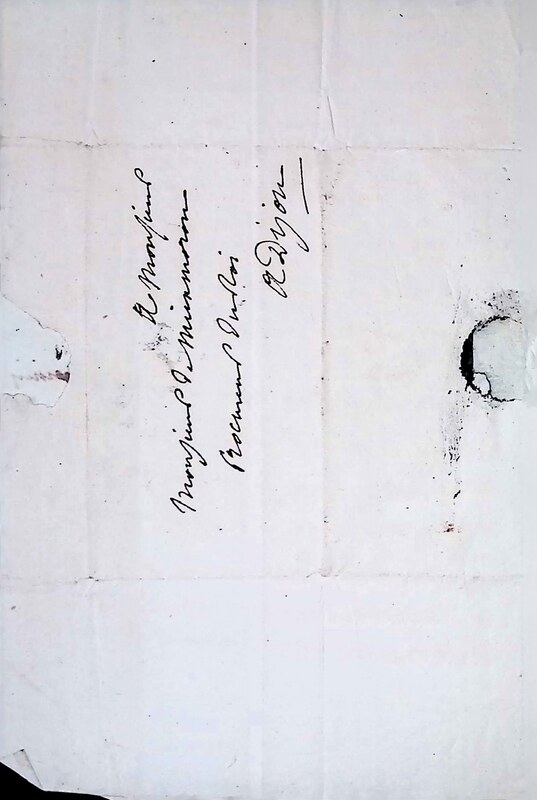 A Monsieur
Monsieur De Miramoron
Procureur Du Roi
A Dijon